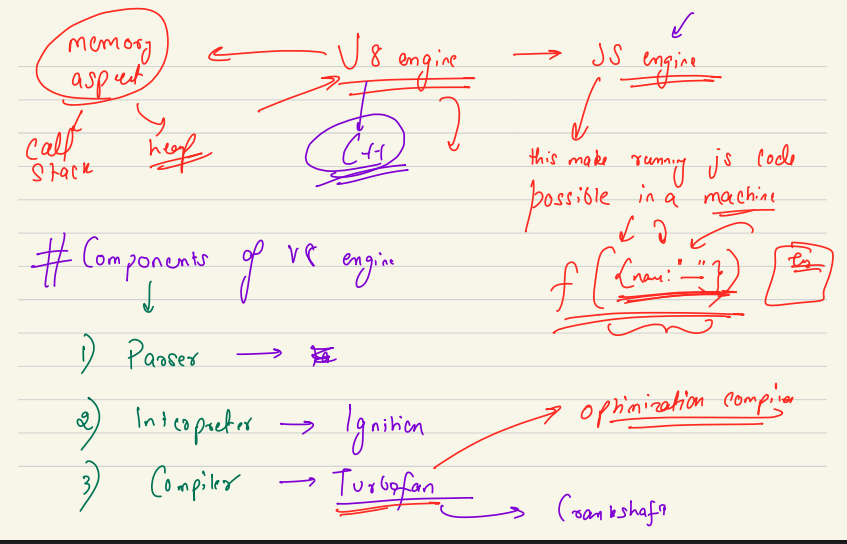 memory aspect
V8 engine
JS engine
call stack
heap
C++
this make running js code
possible in a machine
# Components of V8 engine
f({name:"—"})
1) Parser
2) Interpreter → Ignition
3) Compiler → Turbofan
optimization compiler
Crankshaft